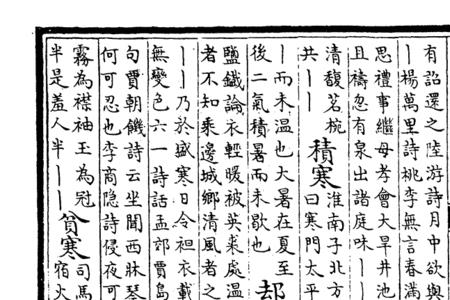 有詔還之陸游詩月中欲與
丨楊萬里詩桃李無言春滿
思禮事繼母孝會大旱井池
且禱忽有泉出諸庭味丨
清馥茗椀
共丨丨
積寒
淮南子北方
曰寒門太平
丨而未温也大暑在夏至
後二氣積暑而未歇也
却
鹽鐵論衣輕暖被英裘處温
者不知乘邊城鄉清風者之
丨丨乃於盛寒日令袒衣載
無變色六一詩話孟郊賈島
句賈朝饑詩云坐聞西牀琴
何可忍也李商隱詩侵夜可
霧為襟袖玉為冠
半是羞人半丨丨
貧寒
司馬
宿火